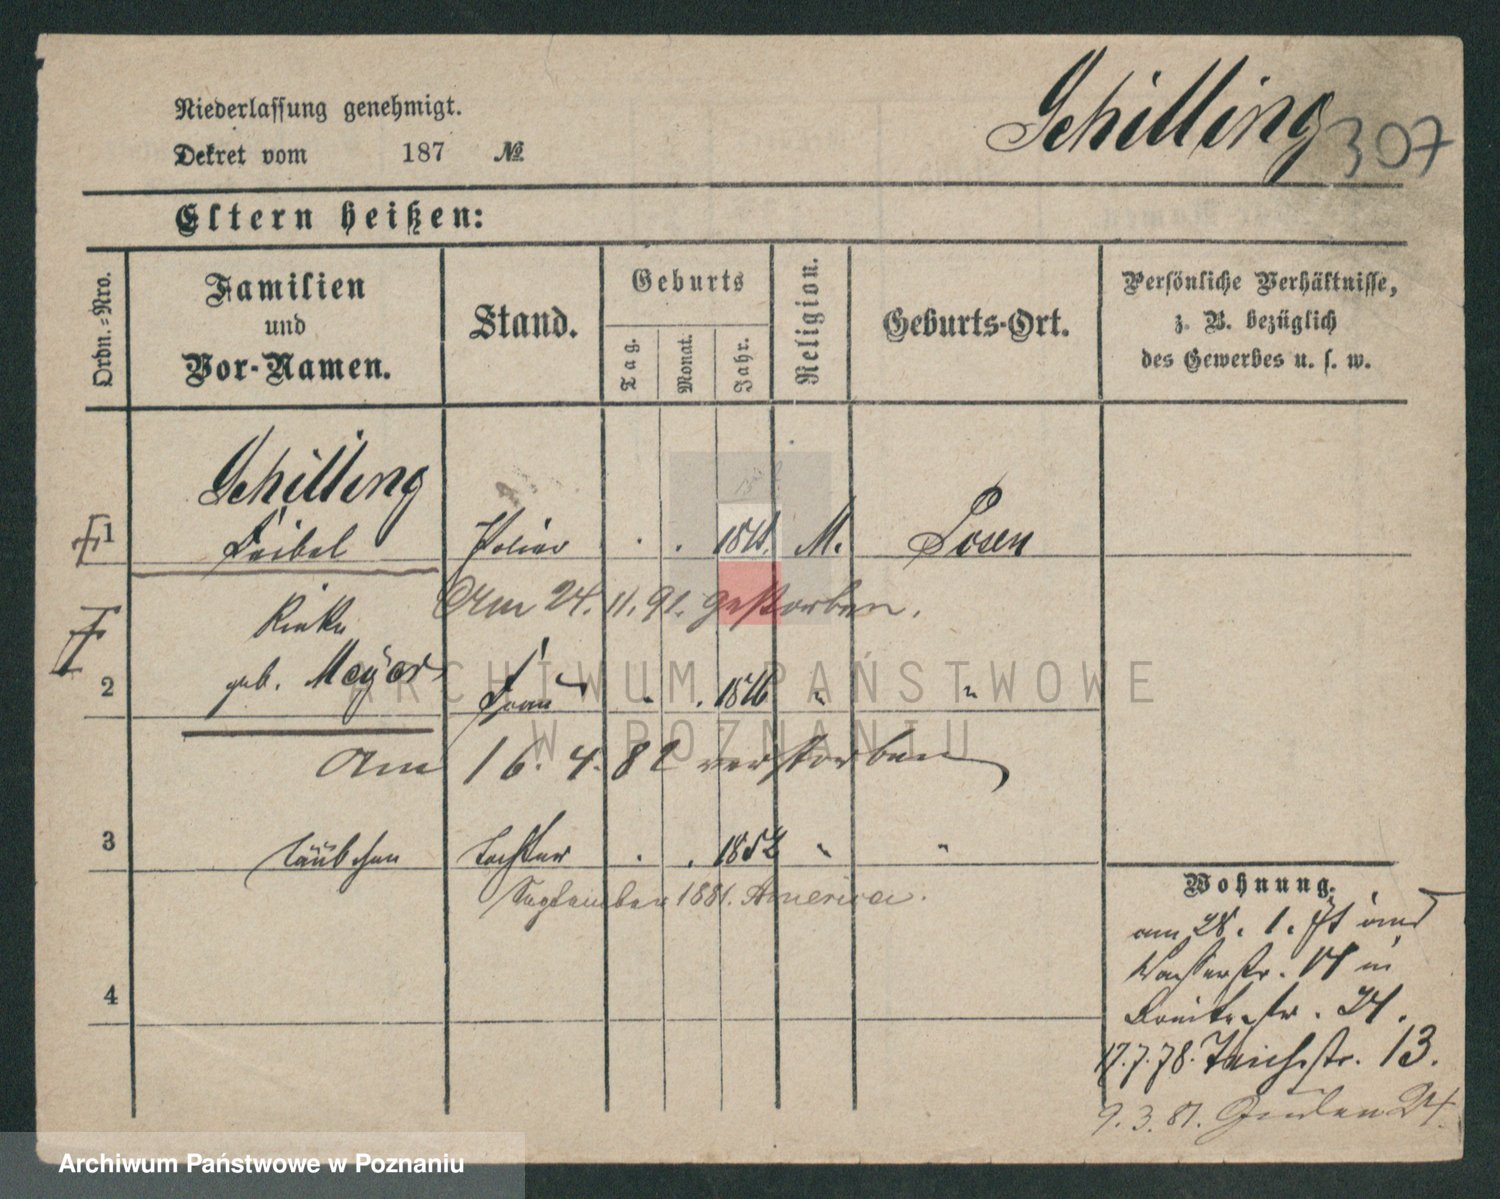 Niederlassung genehmigt.
Dekret vom 187 №
Schilling
307
Eltern heißen:
Ordn.-Nro.
Familien
und
Vor-Namen.
Stand.
Geburts
Tag.
Monat.
Jahr.
Religion.
Geburts-Ort.
Persönliche Verhältnisse,
z. B. bezüglich
des Gewerbes u. s. w.
Schilling
1 Feibel . . M. Posen
Am 24. 11. 91. gestorben.
Rieke
2 geb. Meyer Frau . . 1816 " "
Am 16. 4. 82 verstorben
3 Täubchen Tochter . . 1852 " "
September 1881. America.
4
Wohnung.
am 28. 1. aus
Wasserstr. 17 in
Breitestr. 24.
17.7.78. Teichstr. 13.
9. 3. 81. Juden 24.
ARCHIWUM PAŃSTWOWE
W POZNANIU
Archiwum Państwowe w Poznaniu